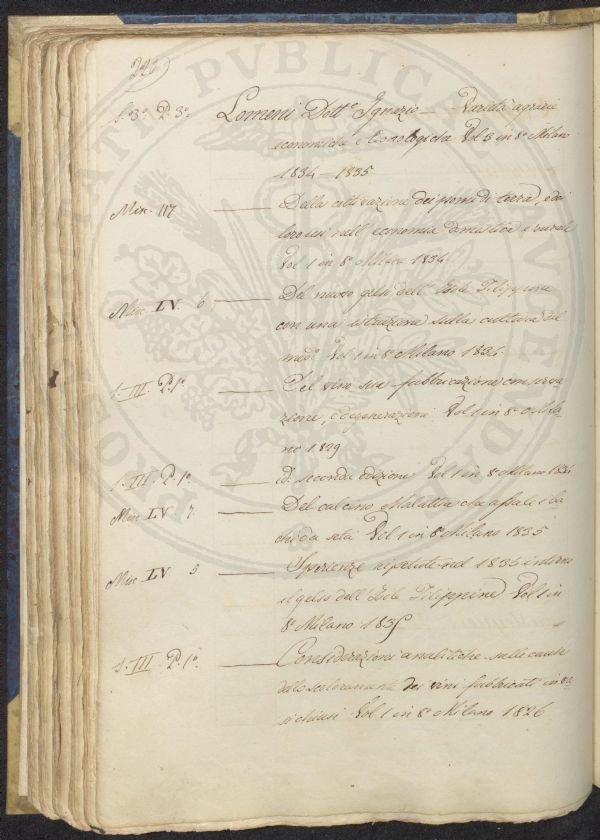 226
S. 3.ª P. 3.ª Lomeni Dott.e Ignazio — Varietà agrarie
economiche e tecnologiche Vol 3 in 8.º Milano
1834 – 1835
Misc. 117 — Della coltivazione dei pomi di terra, e dei
loro usi nell'economia domestica e rurale
Vol 1 in 8.º Milano 1834
Misc. LV. 6 — Del nuovo gelso dell'Isole Filippine
con una istruzione sulla cultura del
med.º Vol 1 in 8.º Milano
S. III. P. 1.ª — Del vino sua fabbricazione conserva
zione, e degenerazioni Vol 1 in 8.º Mila
no 1829
S. III. P. 1.ª — id. seconda edizione Vol 1 in 8.º Milano
Misc LV 7. — Del calcino Malattia che assale i ba
chi da seta Vol 1 in 8.º Milano 1835
Misc LV. 5 — Sperienze ripetute nel intorno
il gelso dell'Isole Filippine Vol 1 in
8.º Milano 1835
S. III. P. 1.ª — Considerazioni analitiche sulle cause
dello scoloramento dei vini fabbricati in va
si chiusi Vol 1 in 8.º Milano 1826
PRO PUBLICA